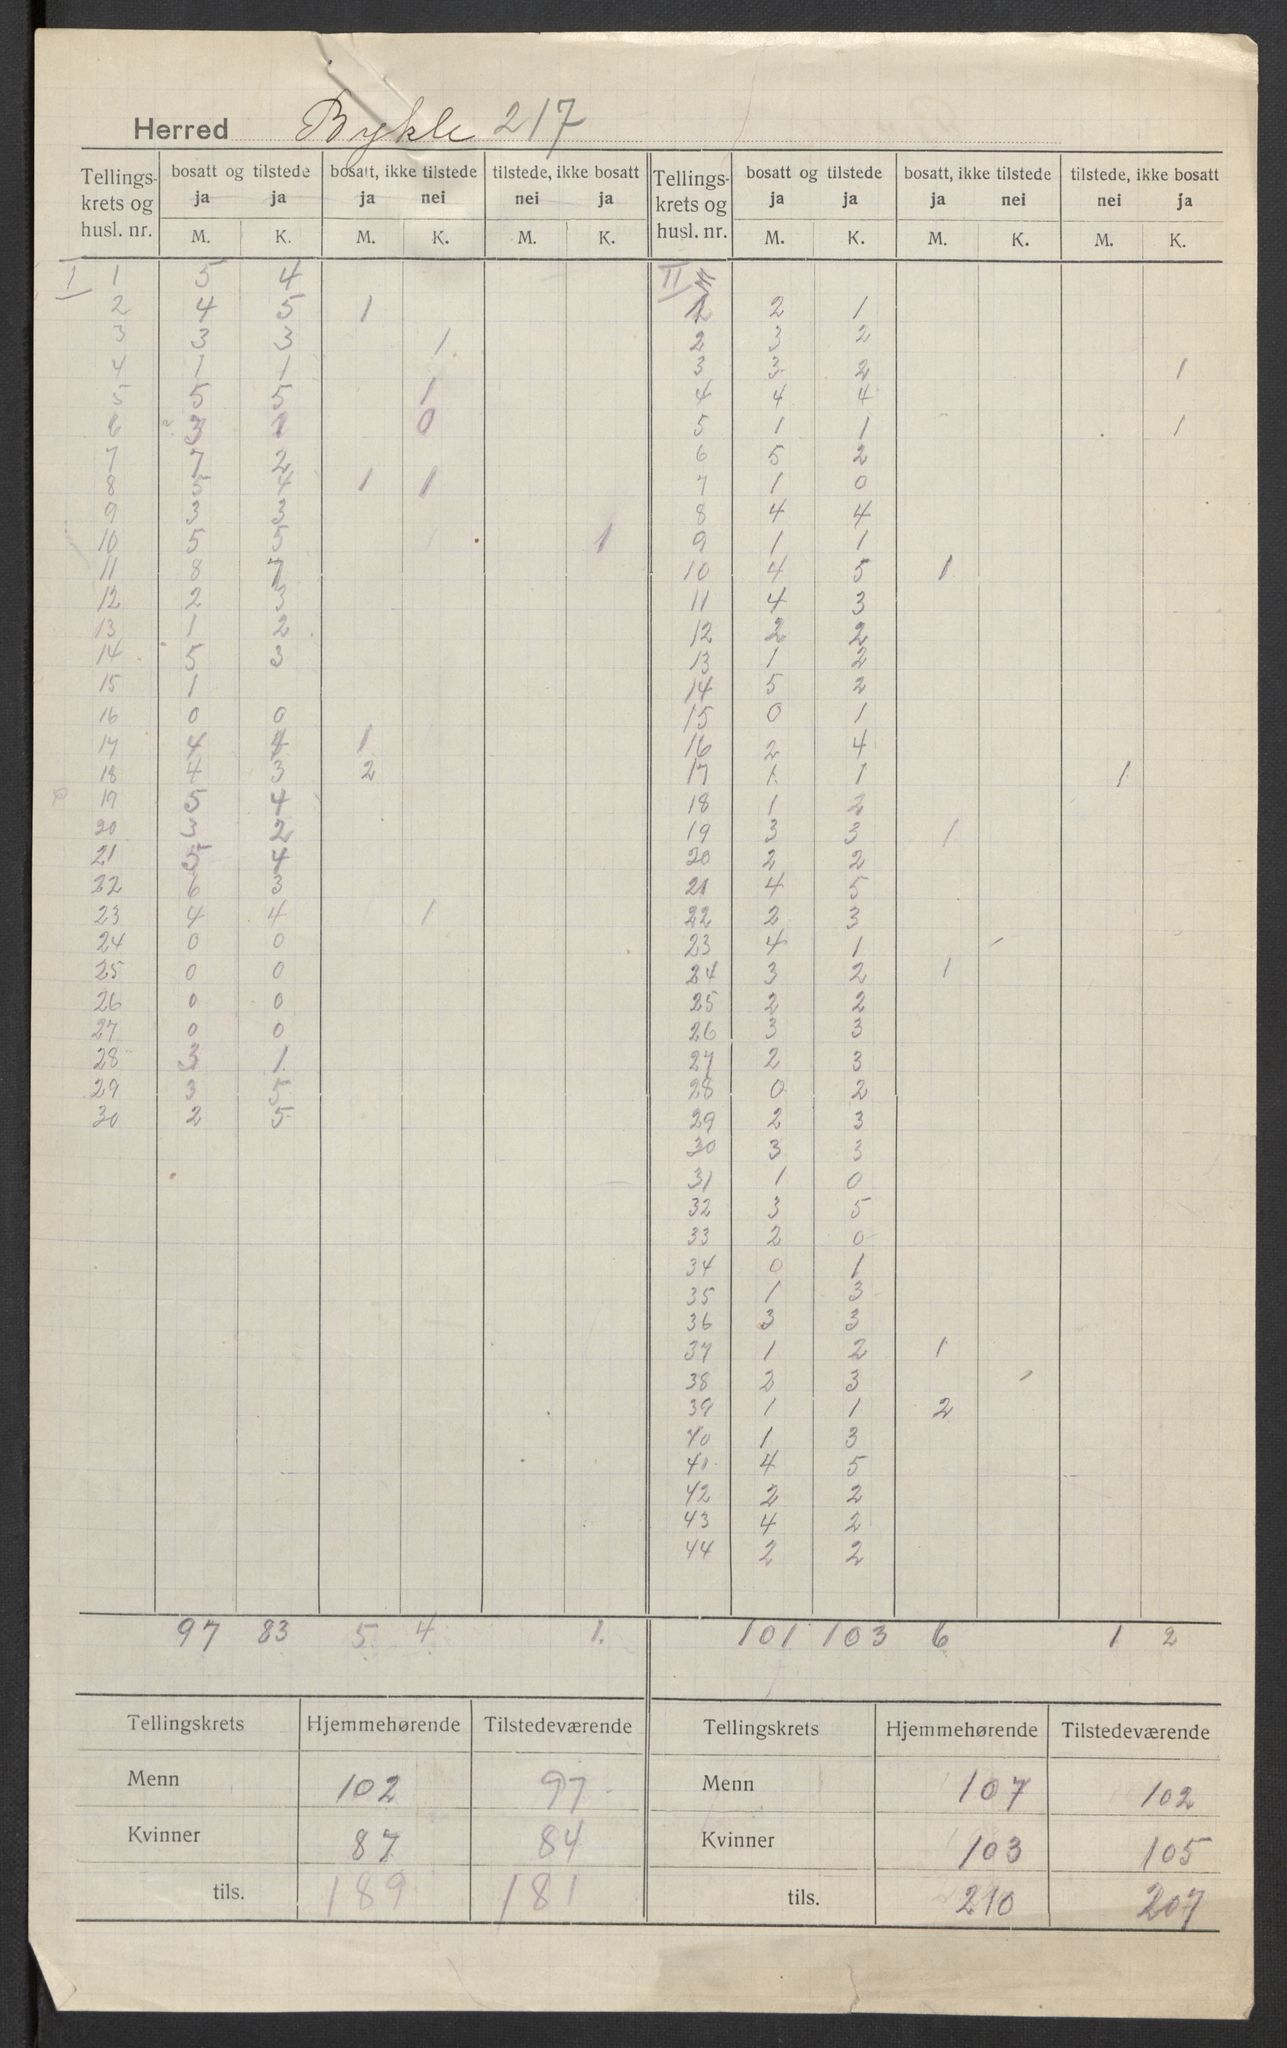 Herred Bykle 217
Tellings- krets og husl. nr. | bosatt og tilstede ja ja | bosatt, ikke tilstede ja nei | tilstede, ikke bosatt nei ja | Tellings- krets og husl. nr. | bosatt og tilstede ja ja | bosatt, ikke tilstede ja nei | tilstede, ikke bosatt nei ja
M. K. M. K. M. K. M. K. M. K. M. K.
I 1 5 4 | II
2 4 5 1 | 1 2 1
3 3 3 1 | 2 3 2
4 1 1 | 3 3 2 1
5 5 5 1 | 4 4 4
6 3 1 0 | 5 1 1 1
7 7 2 | 6 5 2
8 5 4 1 1 | 7 1 0
9 3 3 | 8 4 4
10 5 5 1 | 9 1 1
11 8 7 | 10 4 5 1
12 2 3 | 11 4 3
13 1 2 | 12 2 2
14 5 3 | 13 1 2
15 1 | 14 5 2
16 0 0 | 15 0 1
17 4 4 1 | 16 2 4
18 4 3 2 | 17 1 1 1
19 5 4 | 18 1 2
20 3 2 | 19 3 3 1
21 5 4 | 20 2 2
22 6 3 | 21 4 5
23 4 4 1 | 22 2 3
24 0 0 | 23 4 1
25 0 0 | 24 3 2 1
26 0 0 | 25 2 2
27 0 0 | 26 3 3
28 3 1 | 27 2 3
29 3 5 | 28 0 2
30 2 5 | 29 2 3
30 3 3
31 1 0
32 3 5
33 2 0
34 0 1
35 1 3
36 3 3
37 1 2 1
38 2 3
39 1 1 2
40 1 3
41 4 5
42 2 2
43 4 2
44 2 2
97 83 5 4 1. | 101 103 6 1 2
Tellingskrets Hjemmehørende Tilstedeværende | Tellingskrets Hjemmehørende Tilstedeværende
Menn 102 97 | Menn 107 102
Kvinner 87 84 | Kvinner 103 105
tils. 189 181 | tils. 210 207